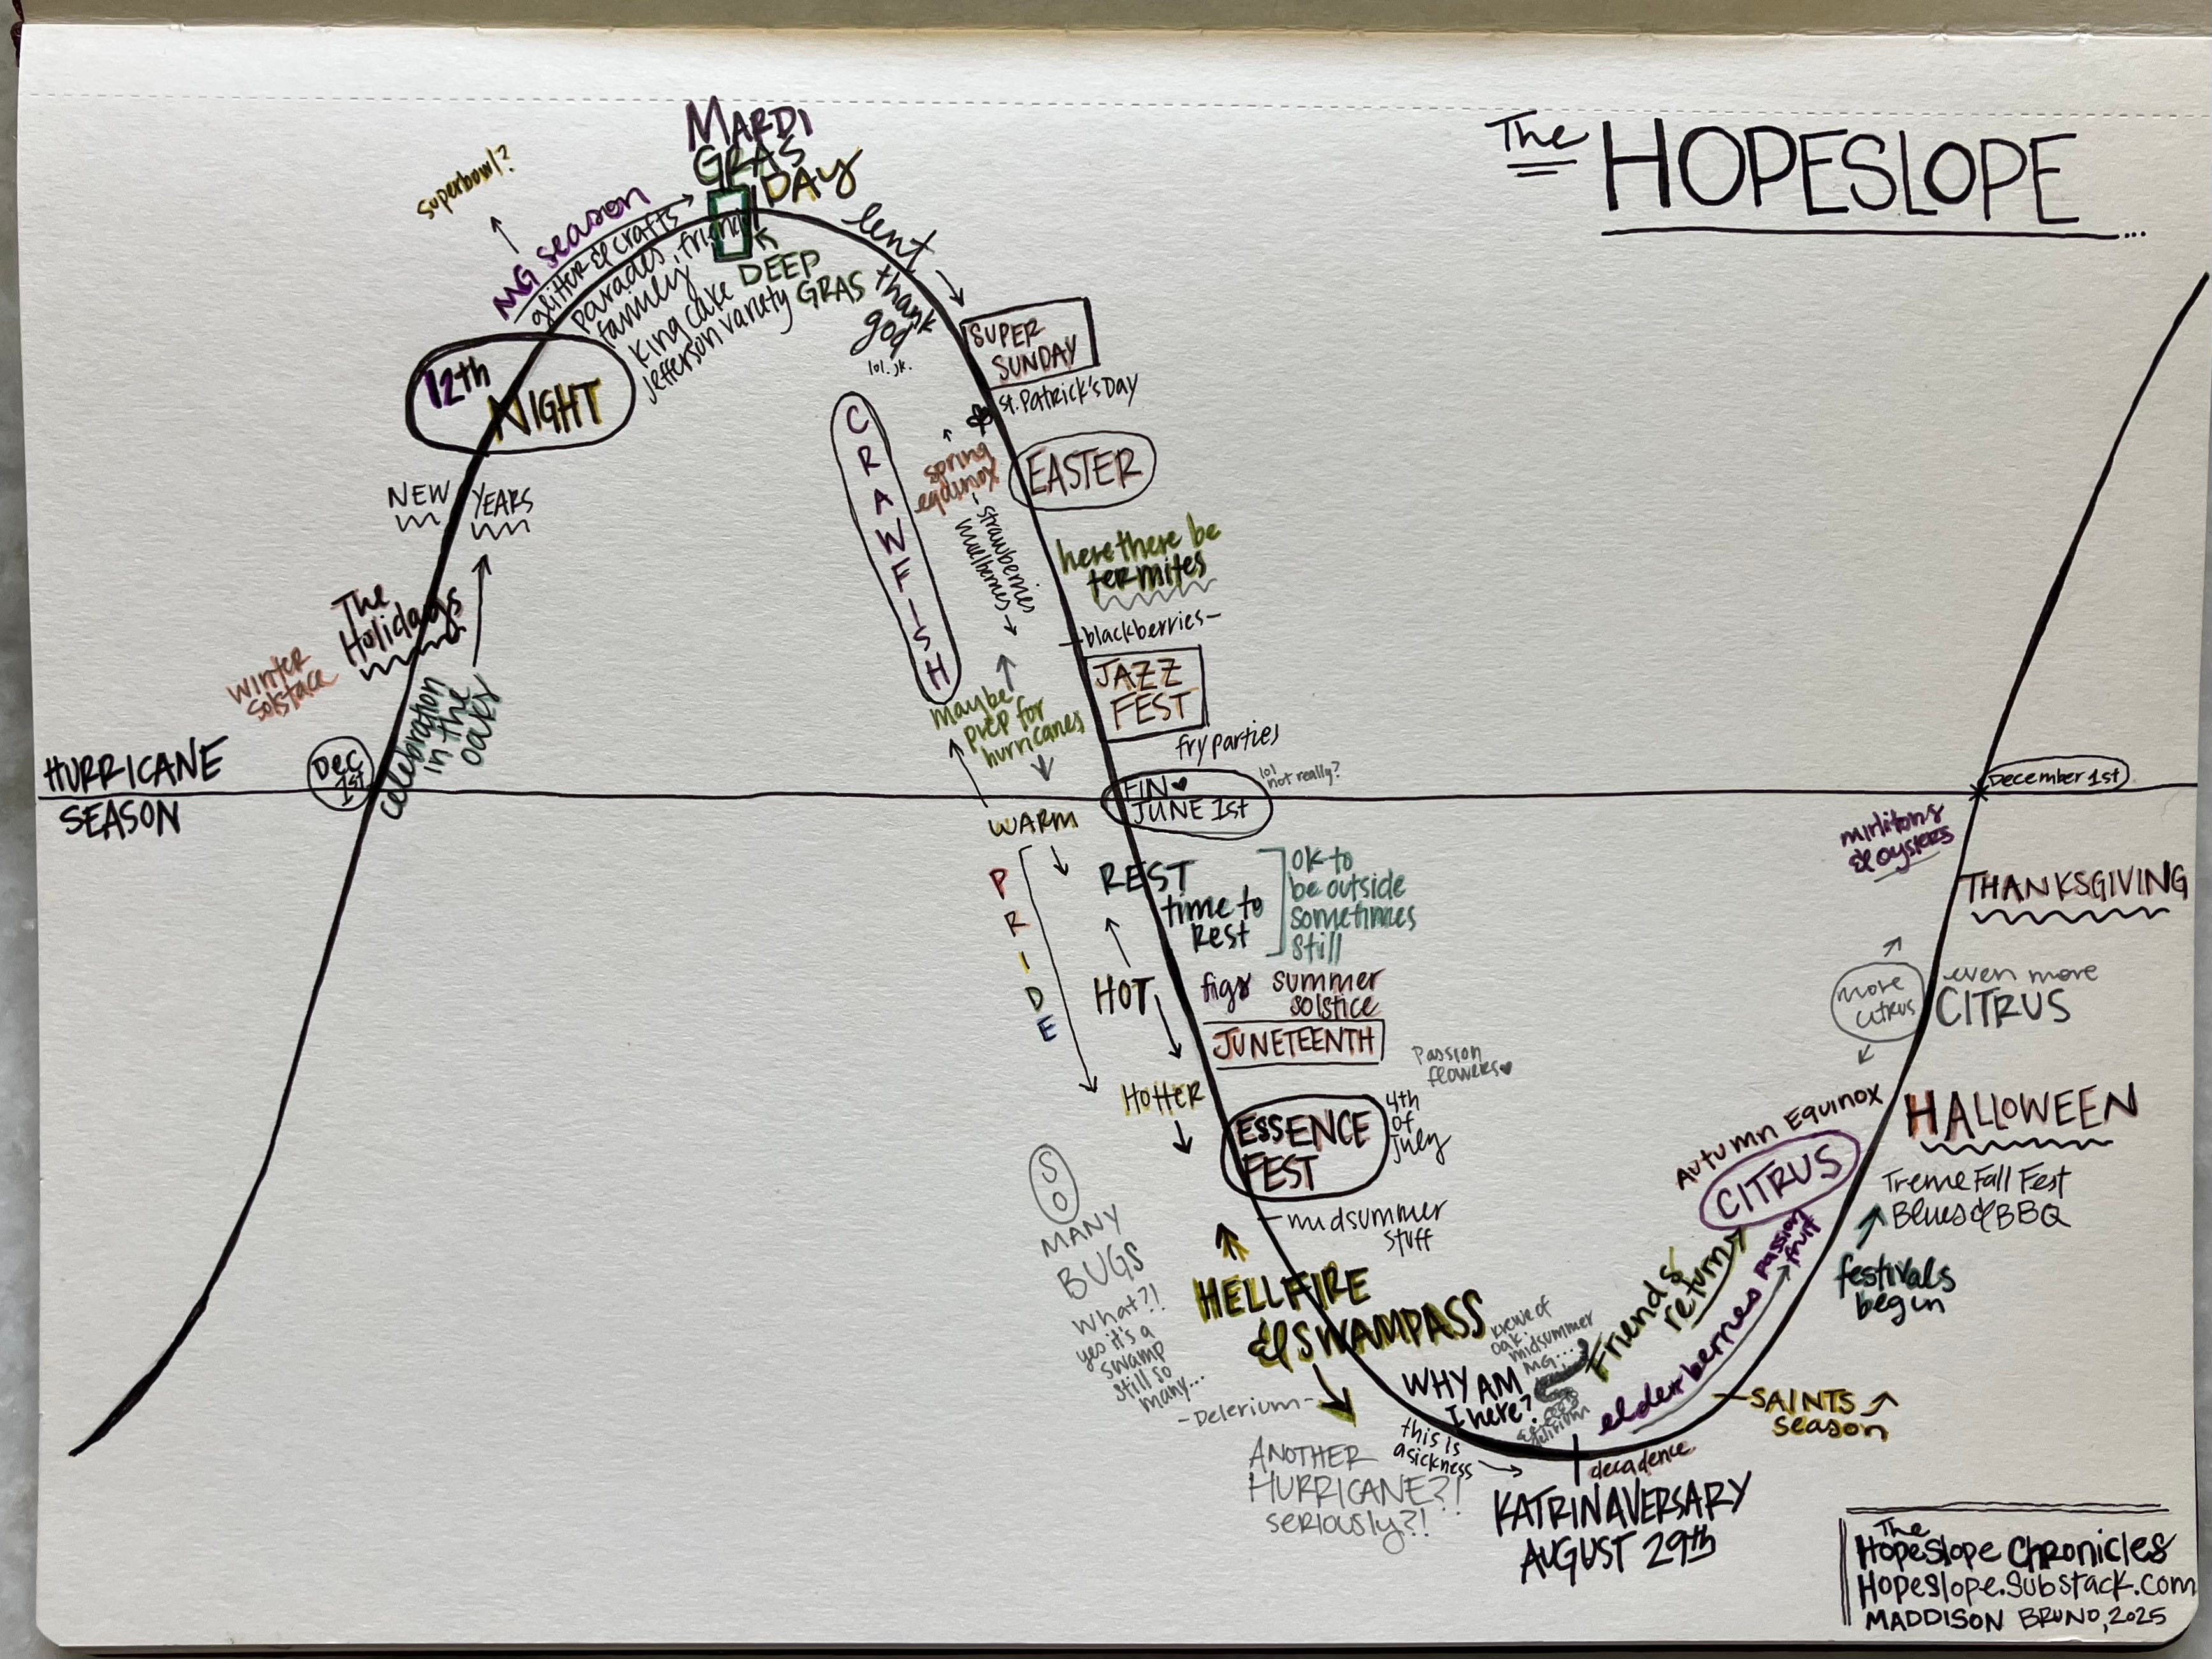 The HOPESLOPE...
MARDI
GRAS
DAY
superbowl?
MG season
glitter & crafts
parades, friends
family
king cake
Jefferson variety
DEEP
GRAS
lent
thank
god
lol. jk.
12th
NIGHT
SUPER
SUNDAY
St. Patrick's Day
CRAWFISH
spring
equinox
strawberries
mulberries
EASTER
NEW YEARS
here there be
termites
The
Holidays
winter
solstace
celebration
in the
oaks
blackberries
JAZZ
FEST
fry parties
maybe
prep for
hurricanes
HURRICANE
SEASON
Dec
1st
FIN ♥
JUNE 1st
lol
not really?
December 1st
WARM
PRIDE
REST
time to
Rest
OK to
be outside
sometimes
still
mirlitons
& oysters
THANKSGIVING
HOT
figs
summer
solstice
JUNETEENTH
Passion
flowers ♥
more
citrus
even more
CITRUS
HOTTER
ESSENCE
FEST
4th
of
July
midsummer
stuff
SO
MANY
BUGS
What?!
yes it's a
swamp
still so
many...
HELLFIRE
& SWAMPASS
-Delerium-
ANOTHER
HURRICANE?!
seriously?!
WHY AM
I here?
this is
a sickness
krewe of
oak:
midsummer
MG...
delirium
KATRINAVERSARY
AUGUST 29th
decadence
Friends
return
elderberries
passion
fruit
CITRUS
Autumn Equinox
HALLOWEEN
Treme Fall Fest
Blues & BBQ
festivals
begin
SAINTS
season
The
Hopeslope Chronicles
Hopeslope.Substack.com
MADDISON BRUNO, 2025